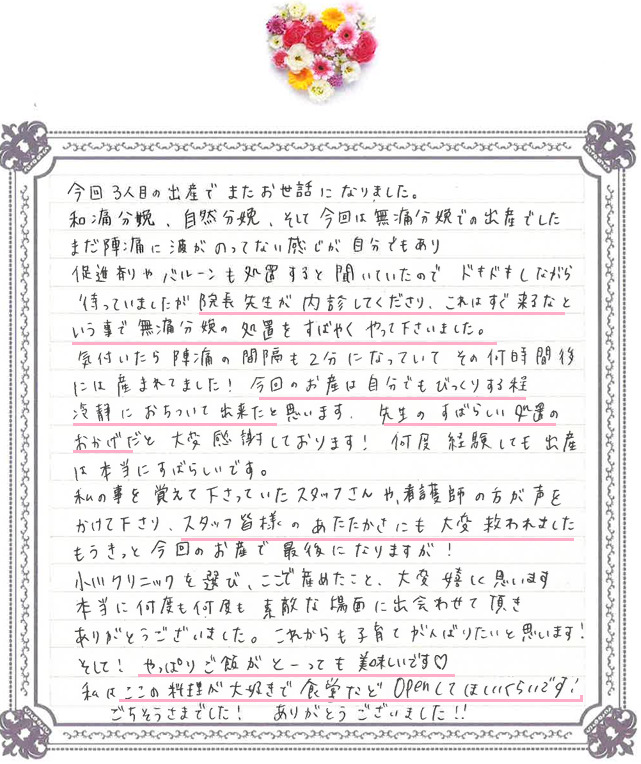 今回3人目の出産でまたお世話になりました。
和痛分娩、自然分娩、そして今回は無痛分娩での出産でした
まだ陣痛に波がのってない感じが自分でもあり
促進剤やバルーンも処置すると聞いていたので ドキドキしながら
待っていましたが院長先生が内診してくださり、これはすぐ来るなと
いう事で無痛分娩の処置をすばやくやって下さいました。
気付いたら陣痛の間隔も2分になっていてその何時間後
には産まれてました!今回のお産は自分でもびっくりする程
冷静におちついて出来たと思います。先生のすばらしい処置の
おかげだと大変感謝しております!何度経験しても出産
は本当にすばらしいです。
私の事を覚えて下さっていたスタッフさんや、看護師の方が声を
かけて下さり、スタッフ皆様のあたたかさにも大変救われました
もうきっと今回のお産で最後になりますが!
小川クリニックを選び、ここで産めたこと、大変嬉しく思います
本当に何度も何度も素敵な場面に出会わせて頂き
ありがとうございました。これからも子育てがんばりたいと思います!
そして!やっぱりご飯がとーっても美味しいです♡
私はここの料理が大好きで食堂などOpenしてほしいくらいです!
ごちそうさまでした! ありがとうございました!!